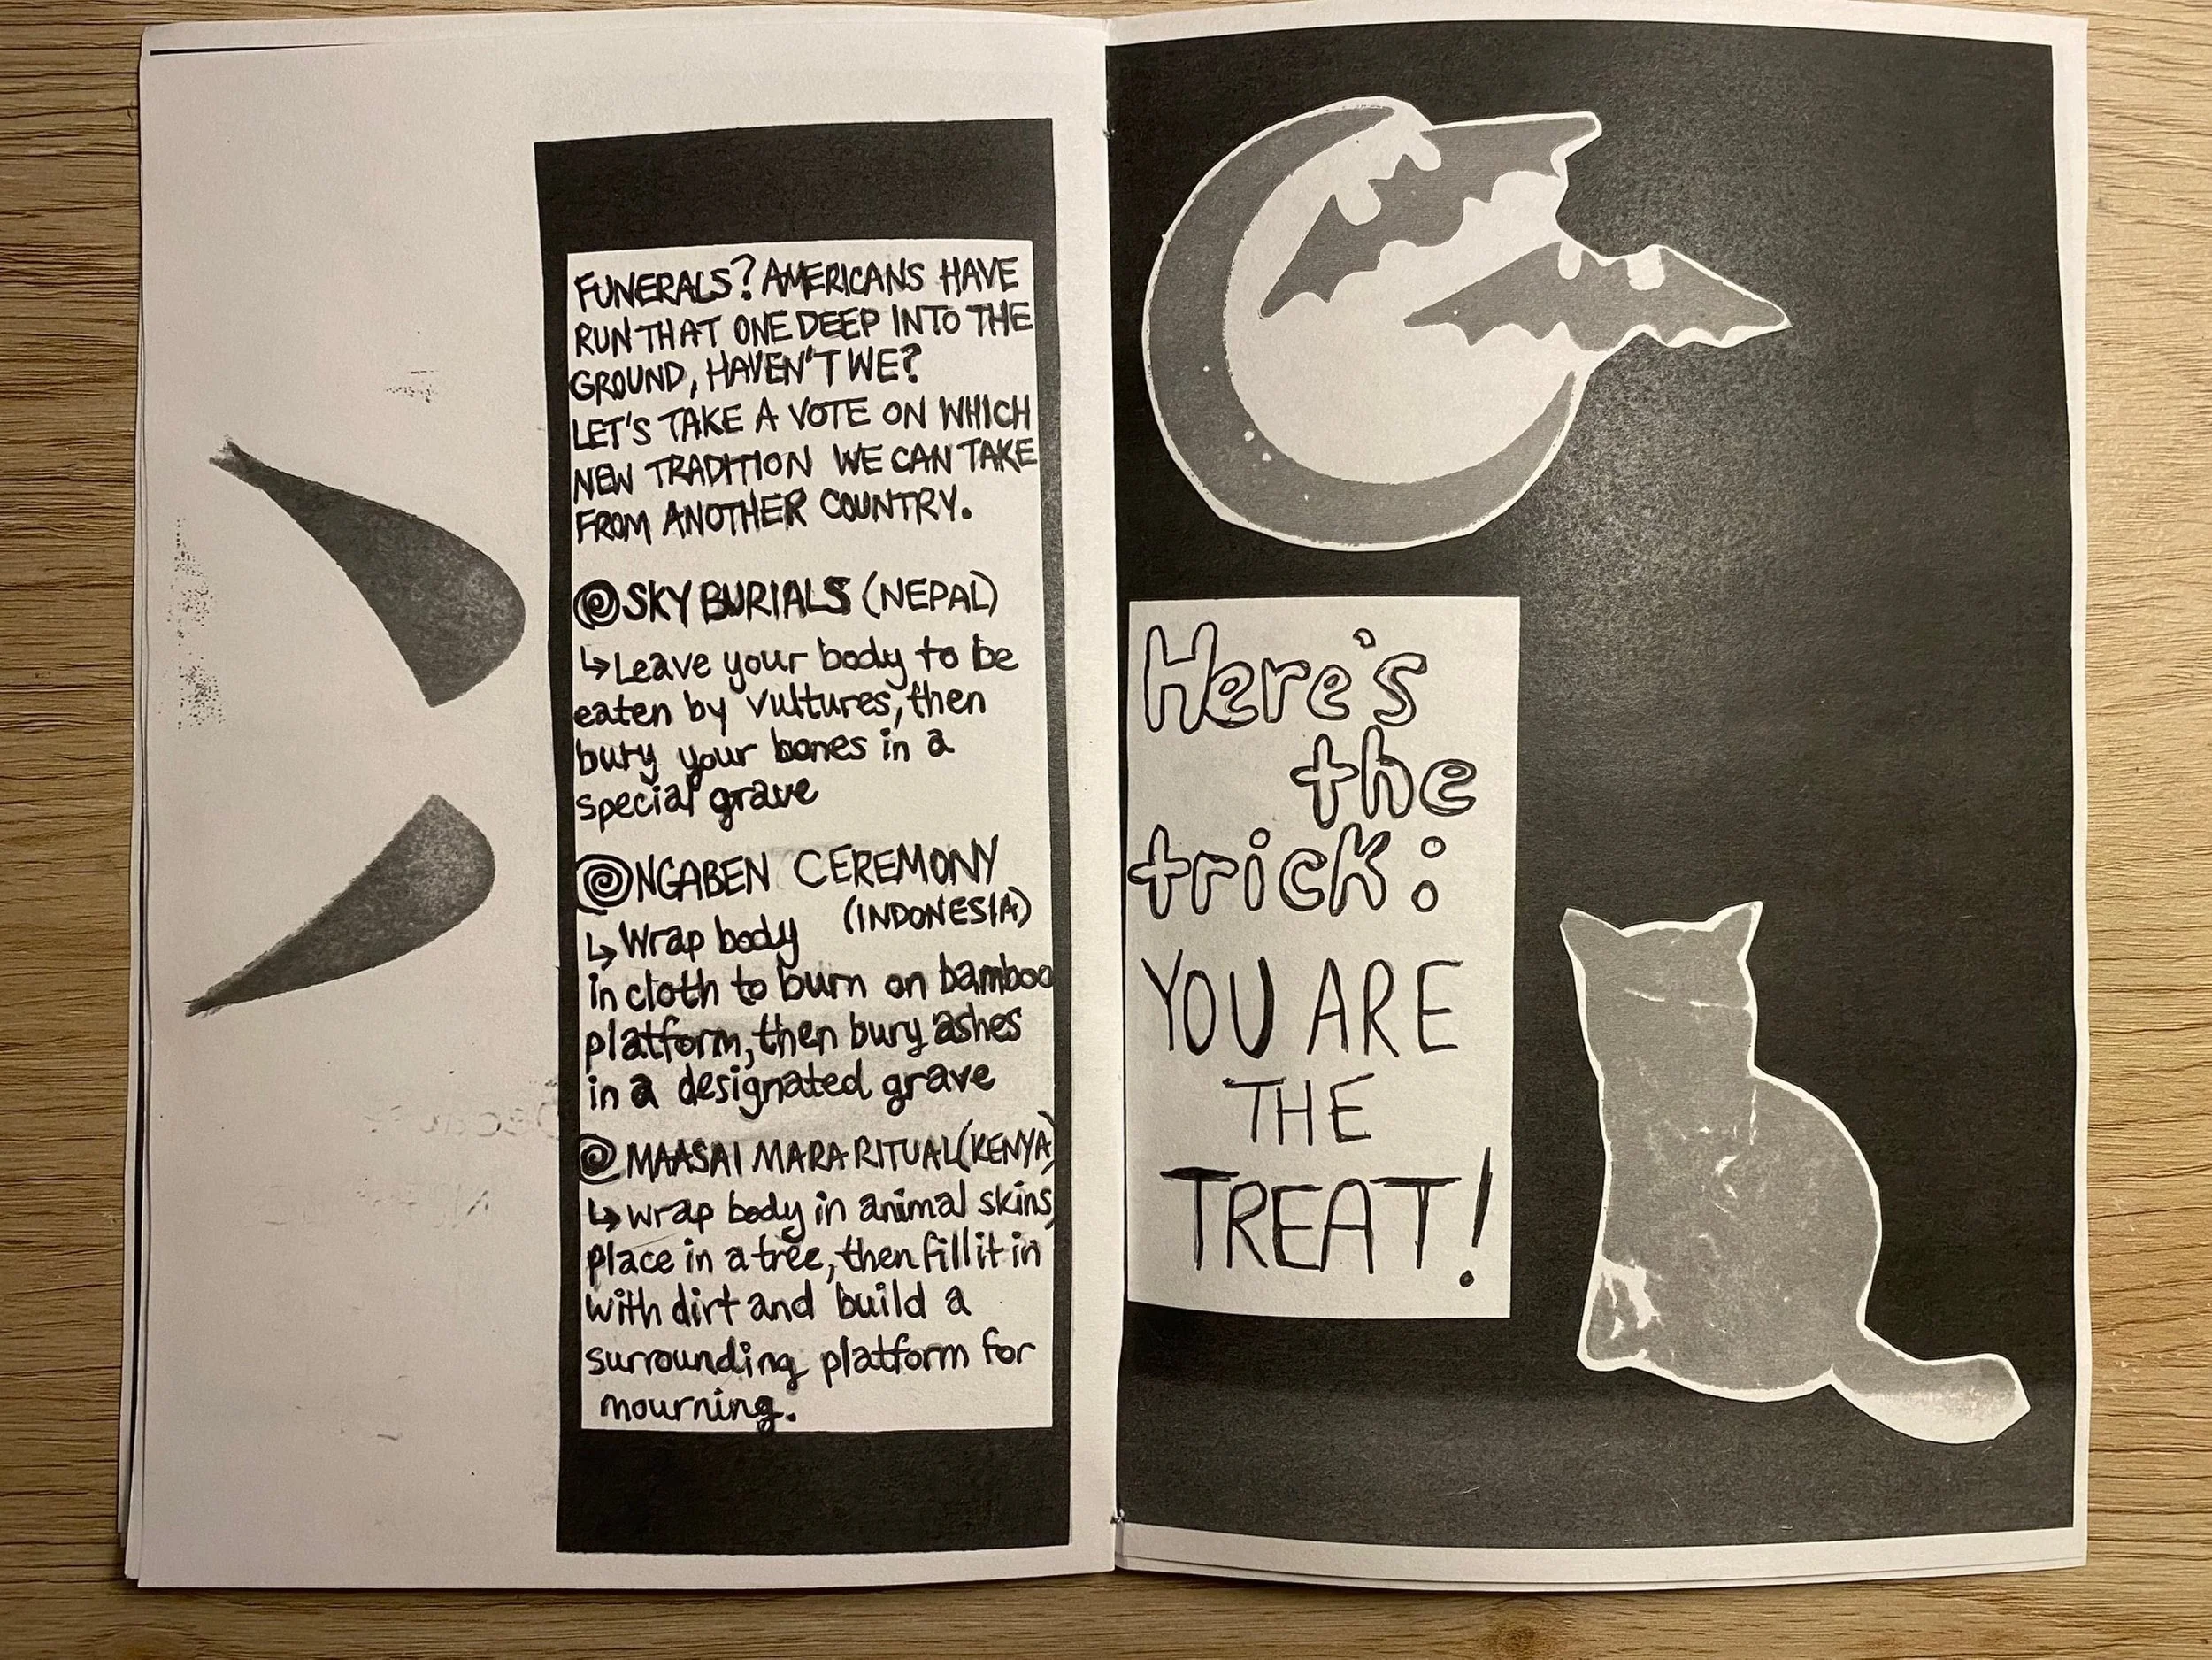 FUNERALS? AMERICANS HAVE
RUN THAT ONE DEEP INTO THE
GROUND, HAVEN'T WE?
LET'S TAKE A VOTE ON WHICH
NEW TRADITION WE CAN TAKE
FROM ANOTHER COUNTRY.
SKY BURIALS (NEPAL)
↳ Leave your body to be
eaten by vultures, then
bury your bones in a
special grave
NGABEN CEREMONY
(INDONESIA)
↳ Wrap body
in cloth to burn on bamboo
platform, then bury ashes
in a designated grave
MAASAI MARA RITUAL (KENYA)
↳ wrap body in animal skins,
place in a tree, then fill it in
with dirt and build a
surrounding platform for
mourning.
Here's
the
trick:
YOU ARE
THE
TREAT!